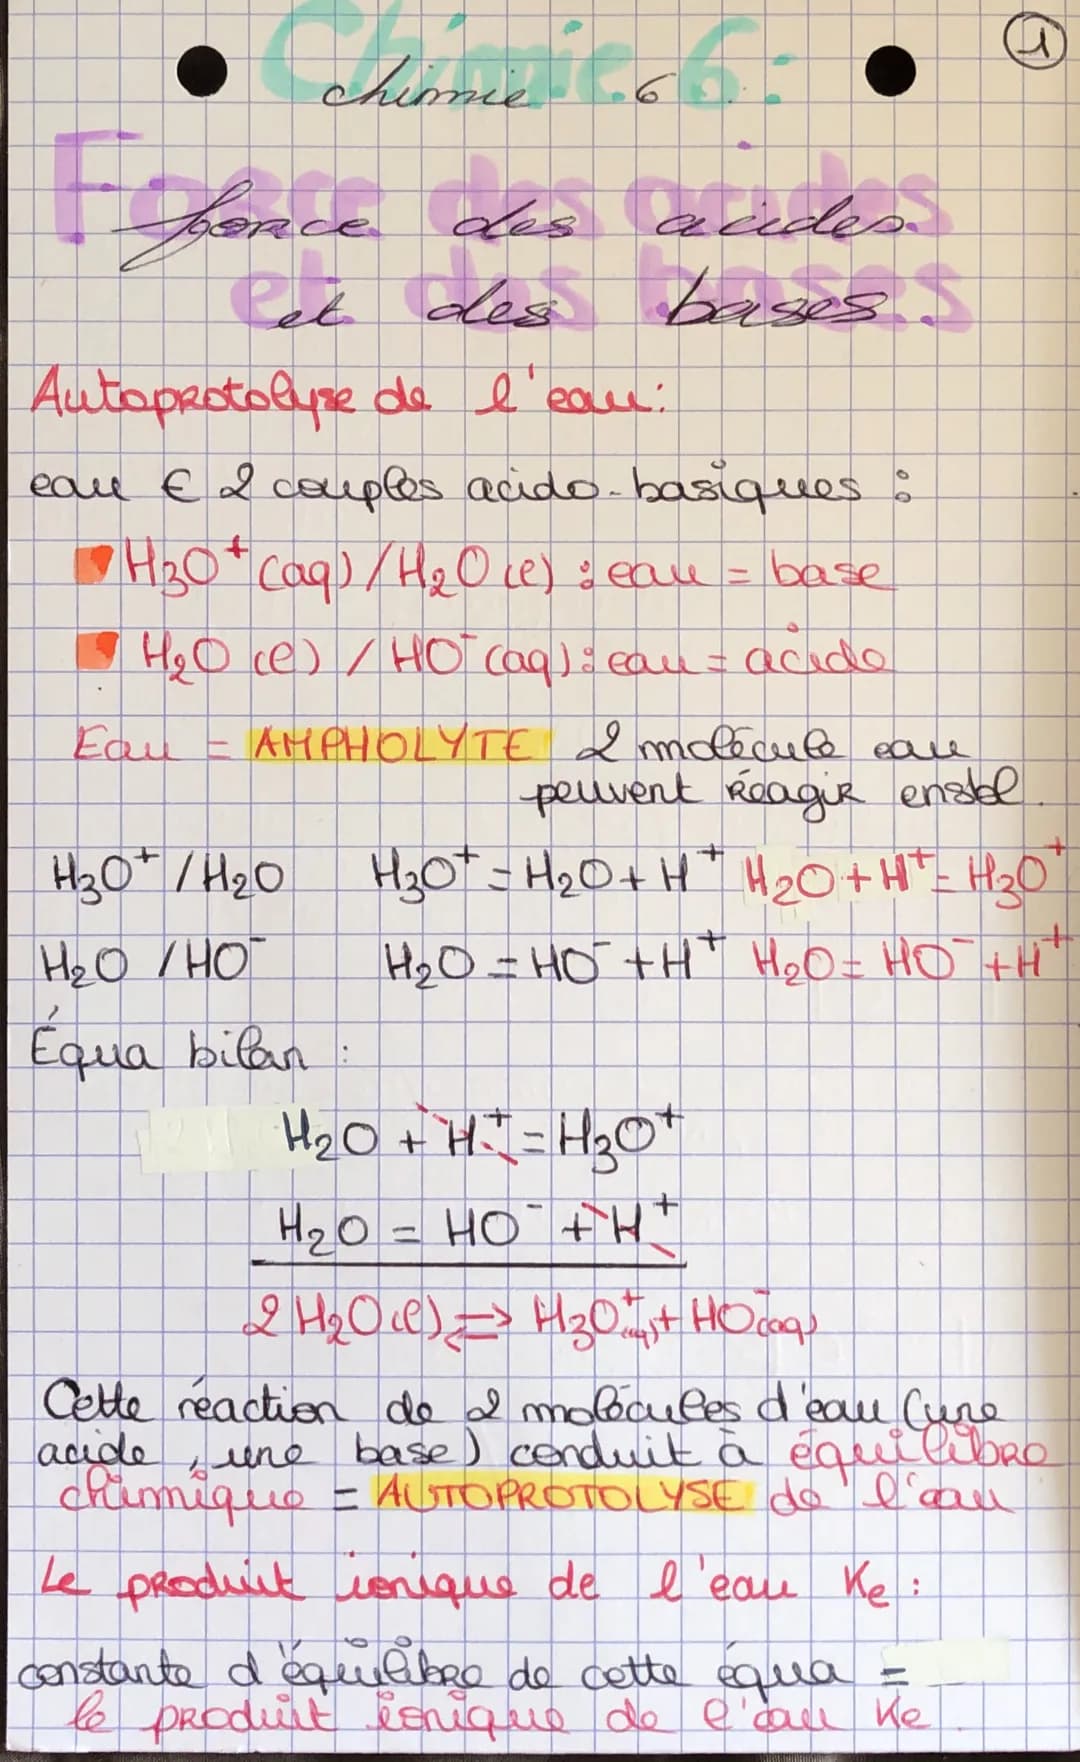 1
Chimie 6 :
chimie 6
Force des acides
force des acides
et des bases
et des bases.
Autoprotolyse de l'eau :
eau € 2 couples acido-basiques :
H3O+ (aq) / H2O (l) : eau = base
H2O (l) / HO- (aq) : eau = acide
Eau = AMPHOLYTE 2 molécule eau
peuvent réagir ensbl.
H3O+ / H2O H3O+ = H2O + H+ H2O + H+ = H3O+
H2O / HO- H2O = HO- + H+ H2O = HO- + H+
Équa bilan :
H2O + H+ = H3O+
H2O = HO- + H+
2 H2O (l) ⇌ H3O+ (aq) + HO- (aq)
Cette réaction de 2 molécules d'eau (une
acide, une base) conduit à équilibre
chimique = AUTOPROTOLYSE de l'eau
Le produit ionique de l'eau Ke :
constante d'équilibre de cette équa =
le produit ionique de l'eau Ke.